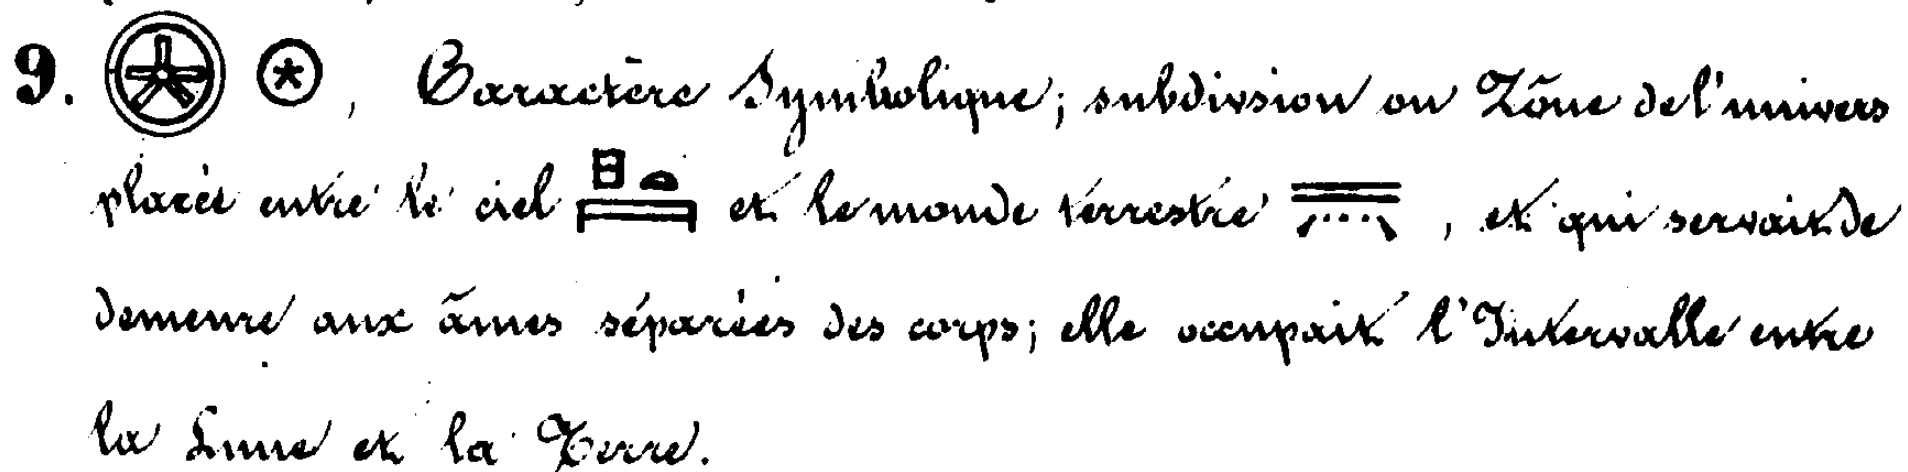 9. 𓇽 , Caractère Symbolique; subdivsion ou Zône de l'univers
placée entre le ciel et le monde terrestre , et qui servait de
demeure aux âmes séparées des corps; elle occupait l'Intervalle entre
la Lune et la Terre.